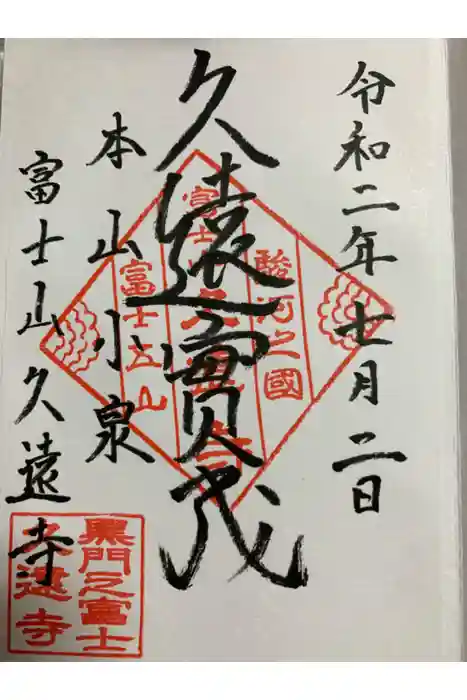 令和二年七月二日
久遠實成
本山小泉
富士山久遠寺
駿河之國
富士山久遠寺
富士五山
黒門之富士
久遠寺